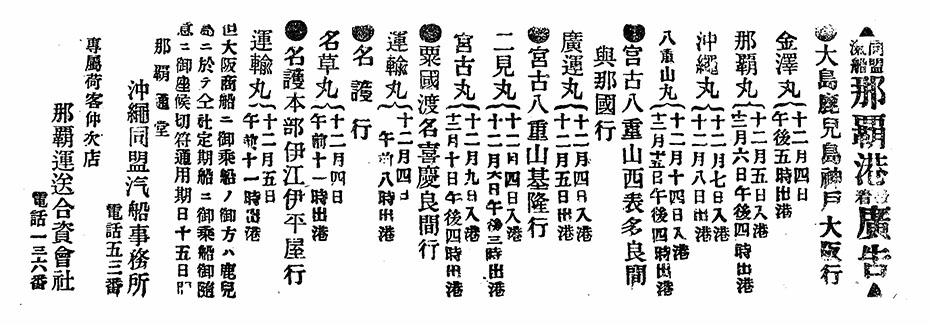 ▲同盟汽船那覇港發着廣告▲
●大島鹿兒島神戸大阪行
金澤丸 十二月四日 午後五時出港
那覇丸 十二月五日入港 十二月六日午後四時出港
沖繩丸 十二月七日入港 十二月八日出港
八重山丸 十二月十四日入港 十二月十五日午後四時出港
●宮古八重山西表多良間
與那國行
廣運丸 十二月四日入港 十二月五日出港
●宮古八重山基隆行
二見丸 十二月四日入港 十二月六日午後三時出港
宮古丸 十二月九日入港 十二月十日午後四時出港
●粟國渡名喜慶良間行
運輸丸 十二月四日 午前八時出港
●名護行
名草丸 十二月四日 午前十一時出港
●名護本部伊江伊平屋行
運輸丸 十二月五日 午前十一時出港
但大阪商船ニ御乘船ノ御方ハ鹿兒
島ニ於テ仝社定期船ニ御乘船御隨
意ニ御座候切符通用期日十五日間
那覇通堂
沖繩同盟汽船事務所
電話五三番
專屬荷客仲次店
那覇運送合資會社
電話一三六番